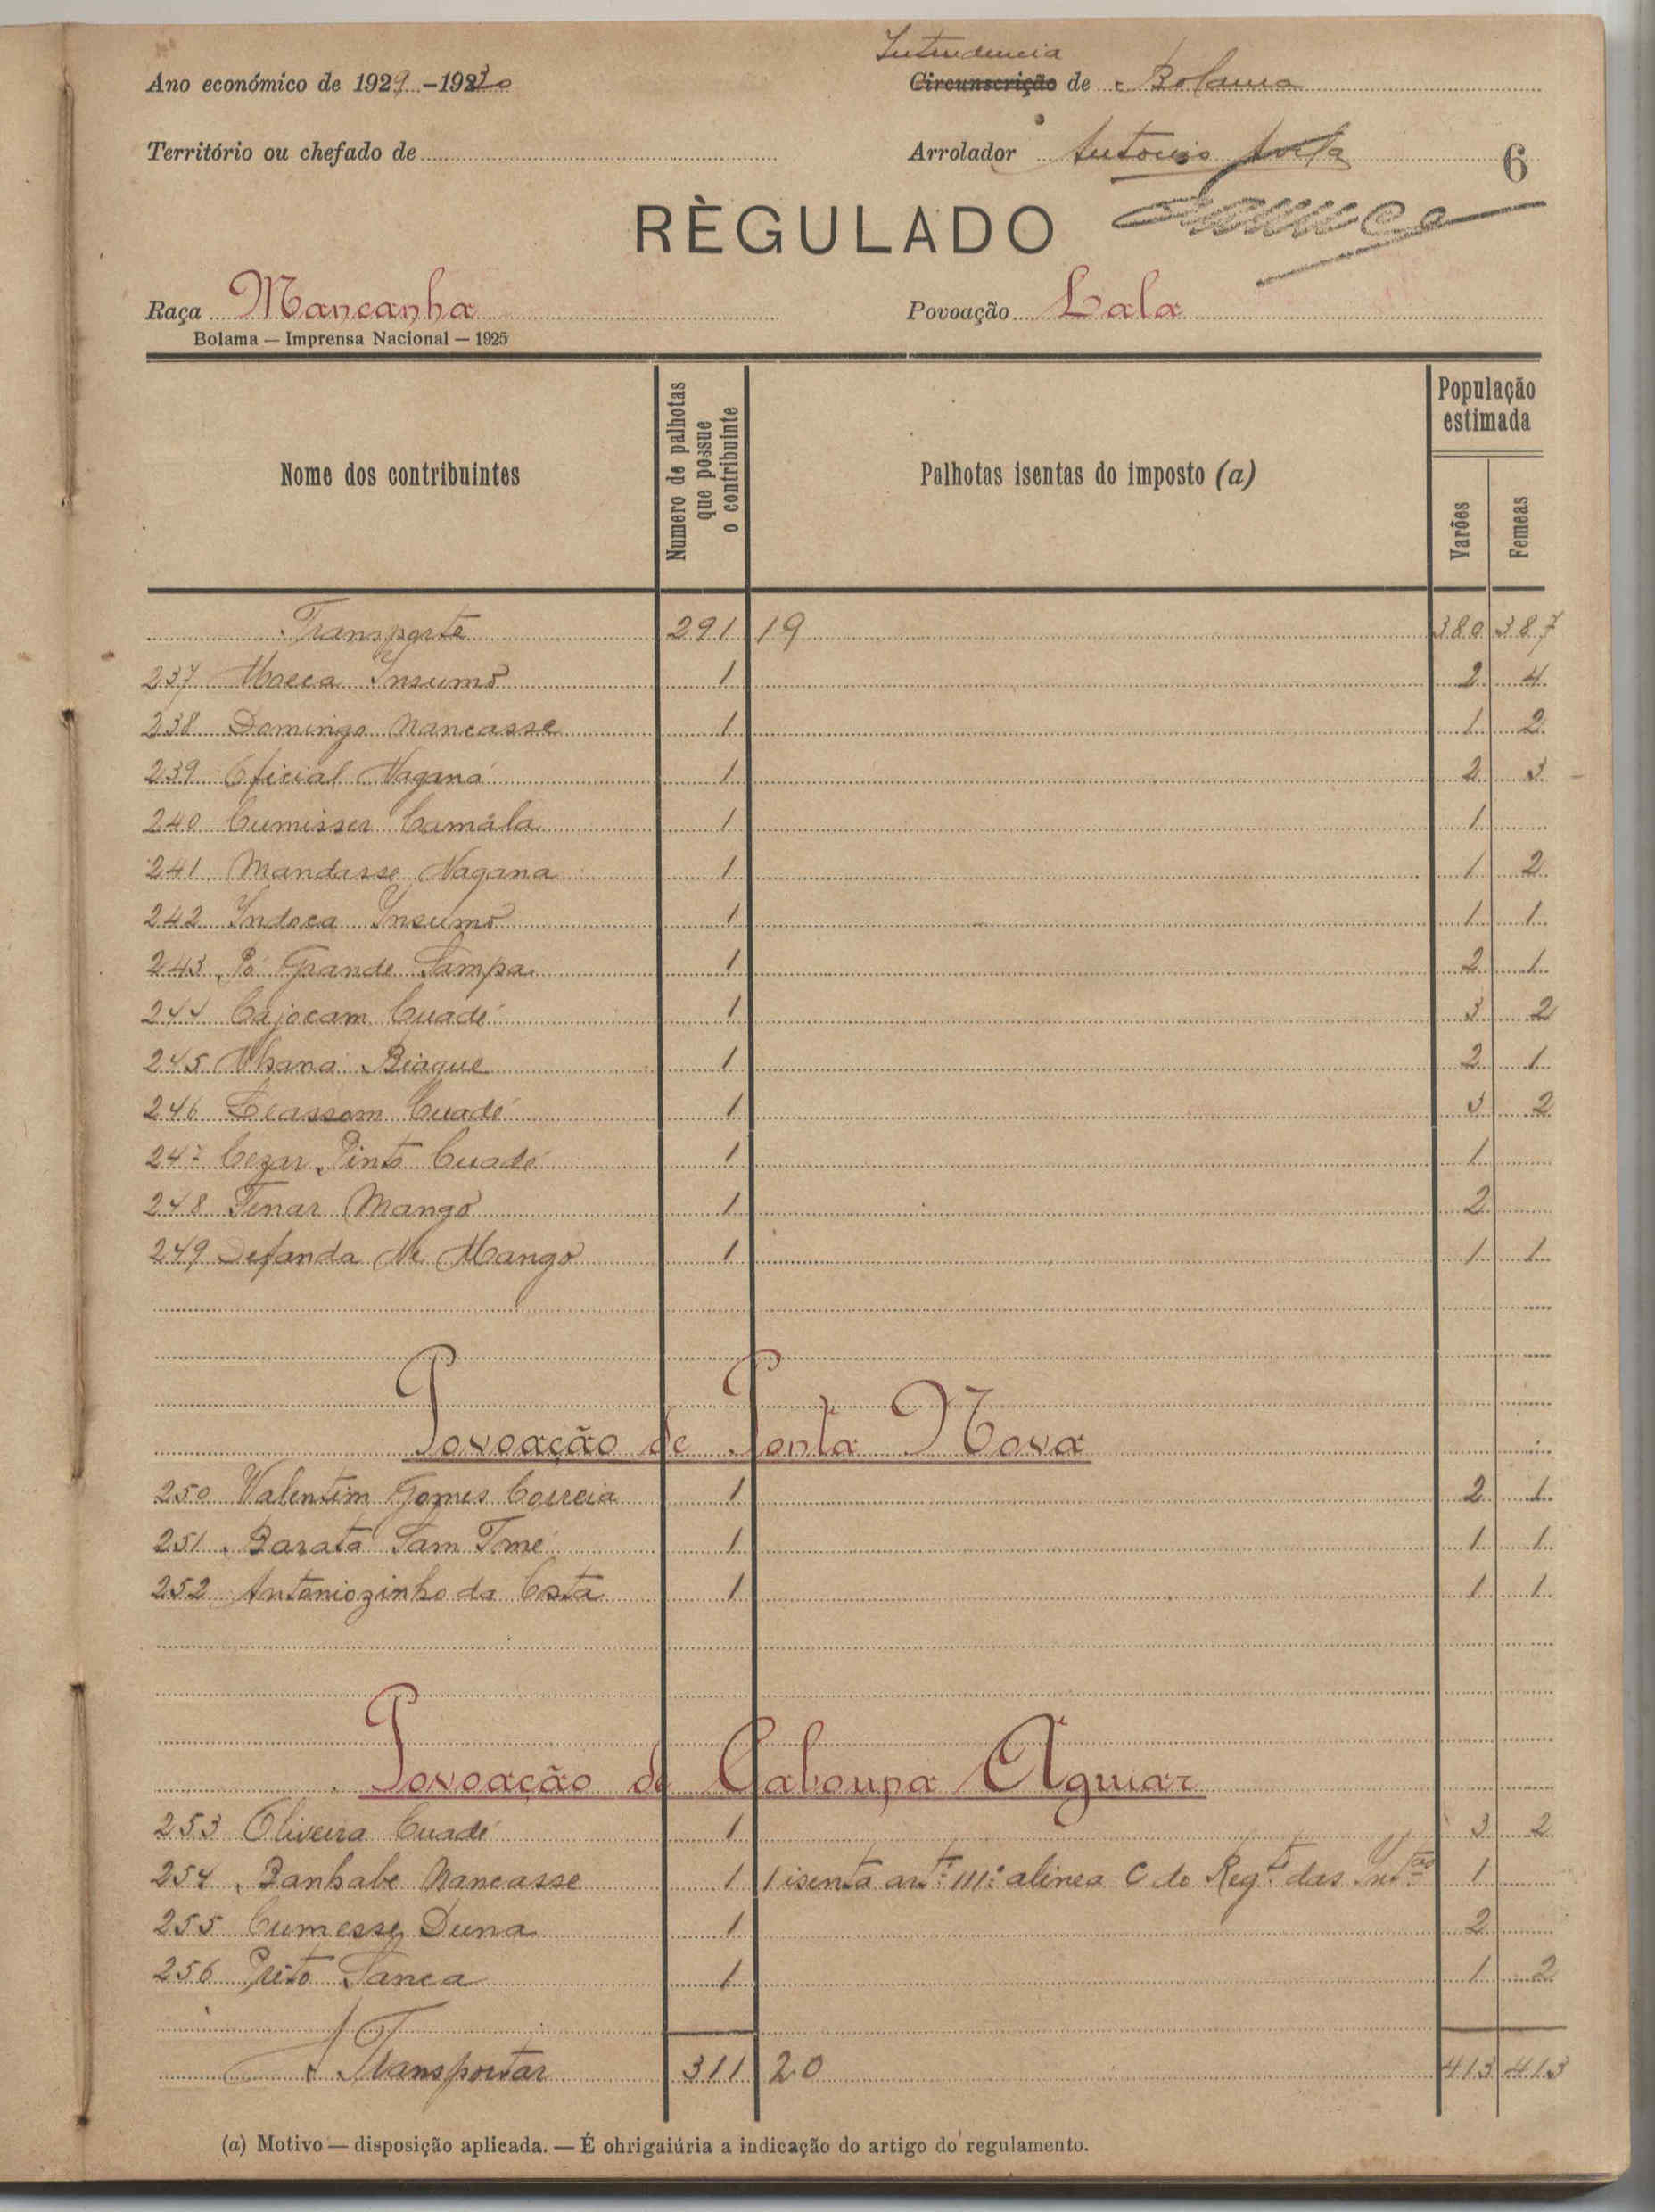 Intendencia
Ano económico de 1929-1930
Circunscrição de Bolama
Território ou chefado de
Arrolador Antonio Avila
6
RÈGULADO
Raça Mancanha
Povoação Lala
Bolama — Imprensa Nacional — 1925
Nome dos contribuintes
Numero de palhotas que possue o contribuinte
Palhotas isentas do imposto (a)
População estimada
Varões
Femeas
Transporte 291 19 380 387
237 Insumó 1 2 4
238 Domingo Nancasse 1 1 2
239 Oficial Naganá 1 2 3
240 Cumisser Camála 1 1
241 Mandasse Nagana 1 1 2
242 Indoca Insumó 1 1 1
243 Pó Grande Sampa 1 2 1
244 Cajocam Cuadé 1 3 2
245 Biague 1 2 1
246 Cuadé 1 3 2
247 Cezar Pinto Cuadé 1 1
248 Tenar Mango 1 2
249 Mango 1 1 1
Povoação de Ponta Nova
250 Valentim Gomes Correia 1 2 1
251 Barata Sam Tmé 1 1 1
252 Antoniozinho da Costa 1 1 1
Povoação de Caboupa Aguiar
253 Oliveira Cuadé 1 3 2
254 Banhabe Nancasse 1 1 isenta artº 111º alinea C do Regtº das 1
255 Cumesse Duna 1 2
256 Preto Sanca 1 1 2
A Transportar 311 20 413 413
(a) Motivo — disposição aplicada. — É ohrigaiúria a indicação do artigo do regulamento.